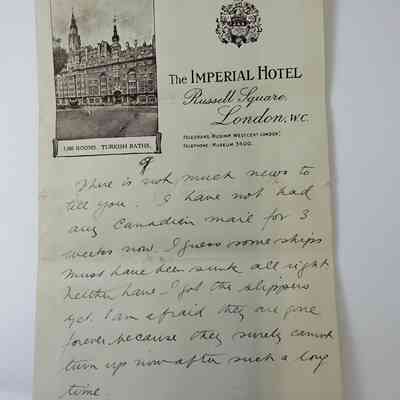 The IMPERIAL HOTEL
Russell Square,
London, W.C.
TELEPHONE: MUSEUM 3600.
1,000 ROOMS. TURKISH BATHS.
9
There is not much news to
tell you. I have not had
any Canadian mail for 3
weeks now. I guess some ships
must have been sunk all right
Neither have I got the slippers
yet. I am afraid they are gone
forever because they surely cannot
turn up now after such a long
time.